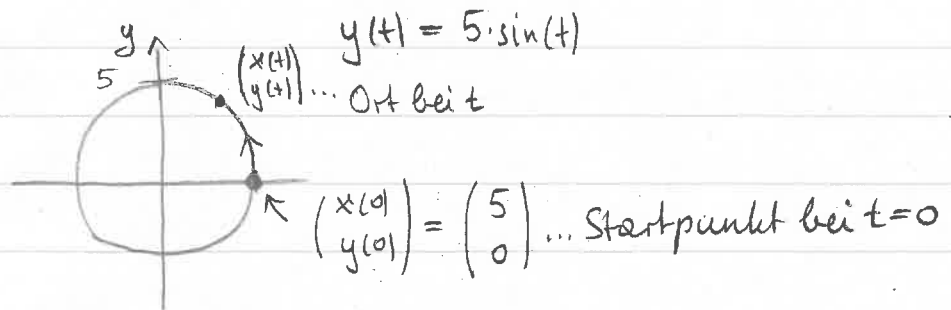 y(t) = 5·sin(t)
y
5
(x(t) y(t)) ... Ort bei t
(x(0) y(0)) = (5 0) ... Startpunkt bei t=0